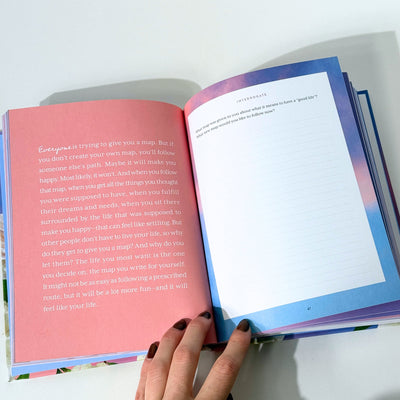 Everyone is trying to give you a map. But if
you don't create your own map, you'll follow
someone else's path. Maybe it will make you
happy. Most likely, it won't. And when you follow
that map, when you get all the things you thought
you were supposed to have, when you fulfill
their dreams and needs, when you sit there
surrounded by the life that was supposed to
make you happy—that can feel like settling. But
other people don't have to live your life, so why
do they get to give you a map? And why do you
let them? The life you most want is the one
you decide on, the map you write for yourself.
It might not be as easy as following a prescribed
route, but it will be a lot more fun—and it will
feel like your life.
INTERROGATE
What map was given to you about what it means to have a "good life"?
What new map would you like to follow now?